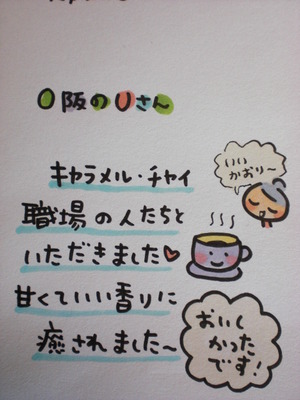 O阪のUさん
キャラメル・チャイ
職場の人たちと
いただきました♥
甘くていい香りに
癒されました~
いい
かおり~
おいし
かった
です!